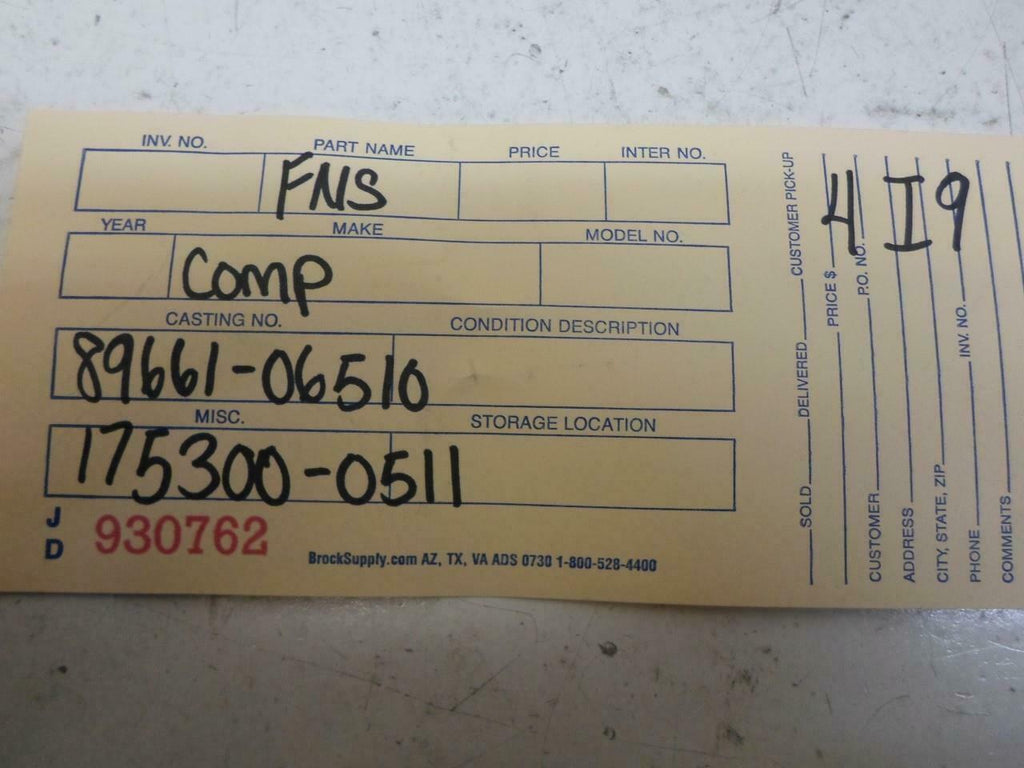 INV. NO. PART NAME PRICE INTER NO.
FNS
YEAR MAKE MODEL NO.
Comp
CASTING NO. CONDITION DESCRIPTION
89661-06510
MISC. STORAGE LOCATION
175300-0511
J D 930762
BrockSupply.com AZ, TX, VA ADS 0730 1-800-528-4400
SOLD DELIVERED CUSTOMER PICK-UP
PRICE $
CUSTOMER P.O. NO.
ADDRESS
CITY, STATE, ZIP
PHONE INV. NO.
COMMENTS
4 I 9